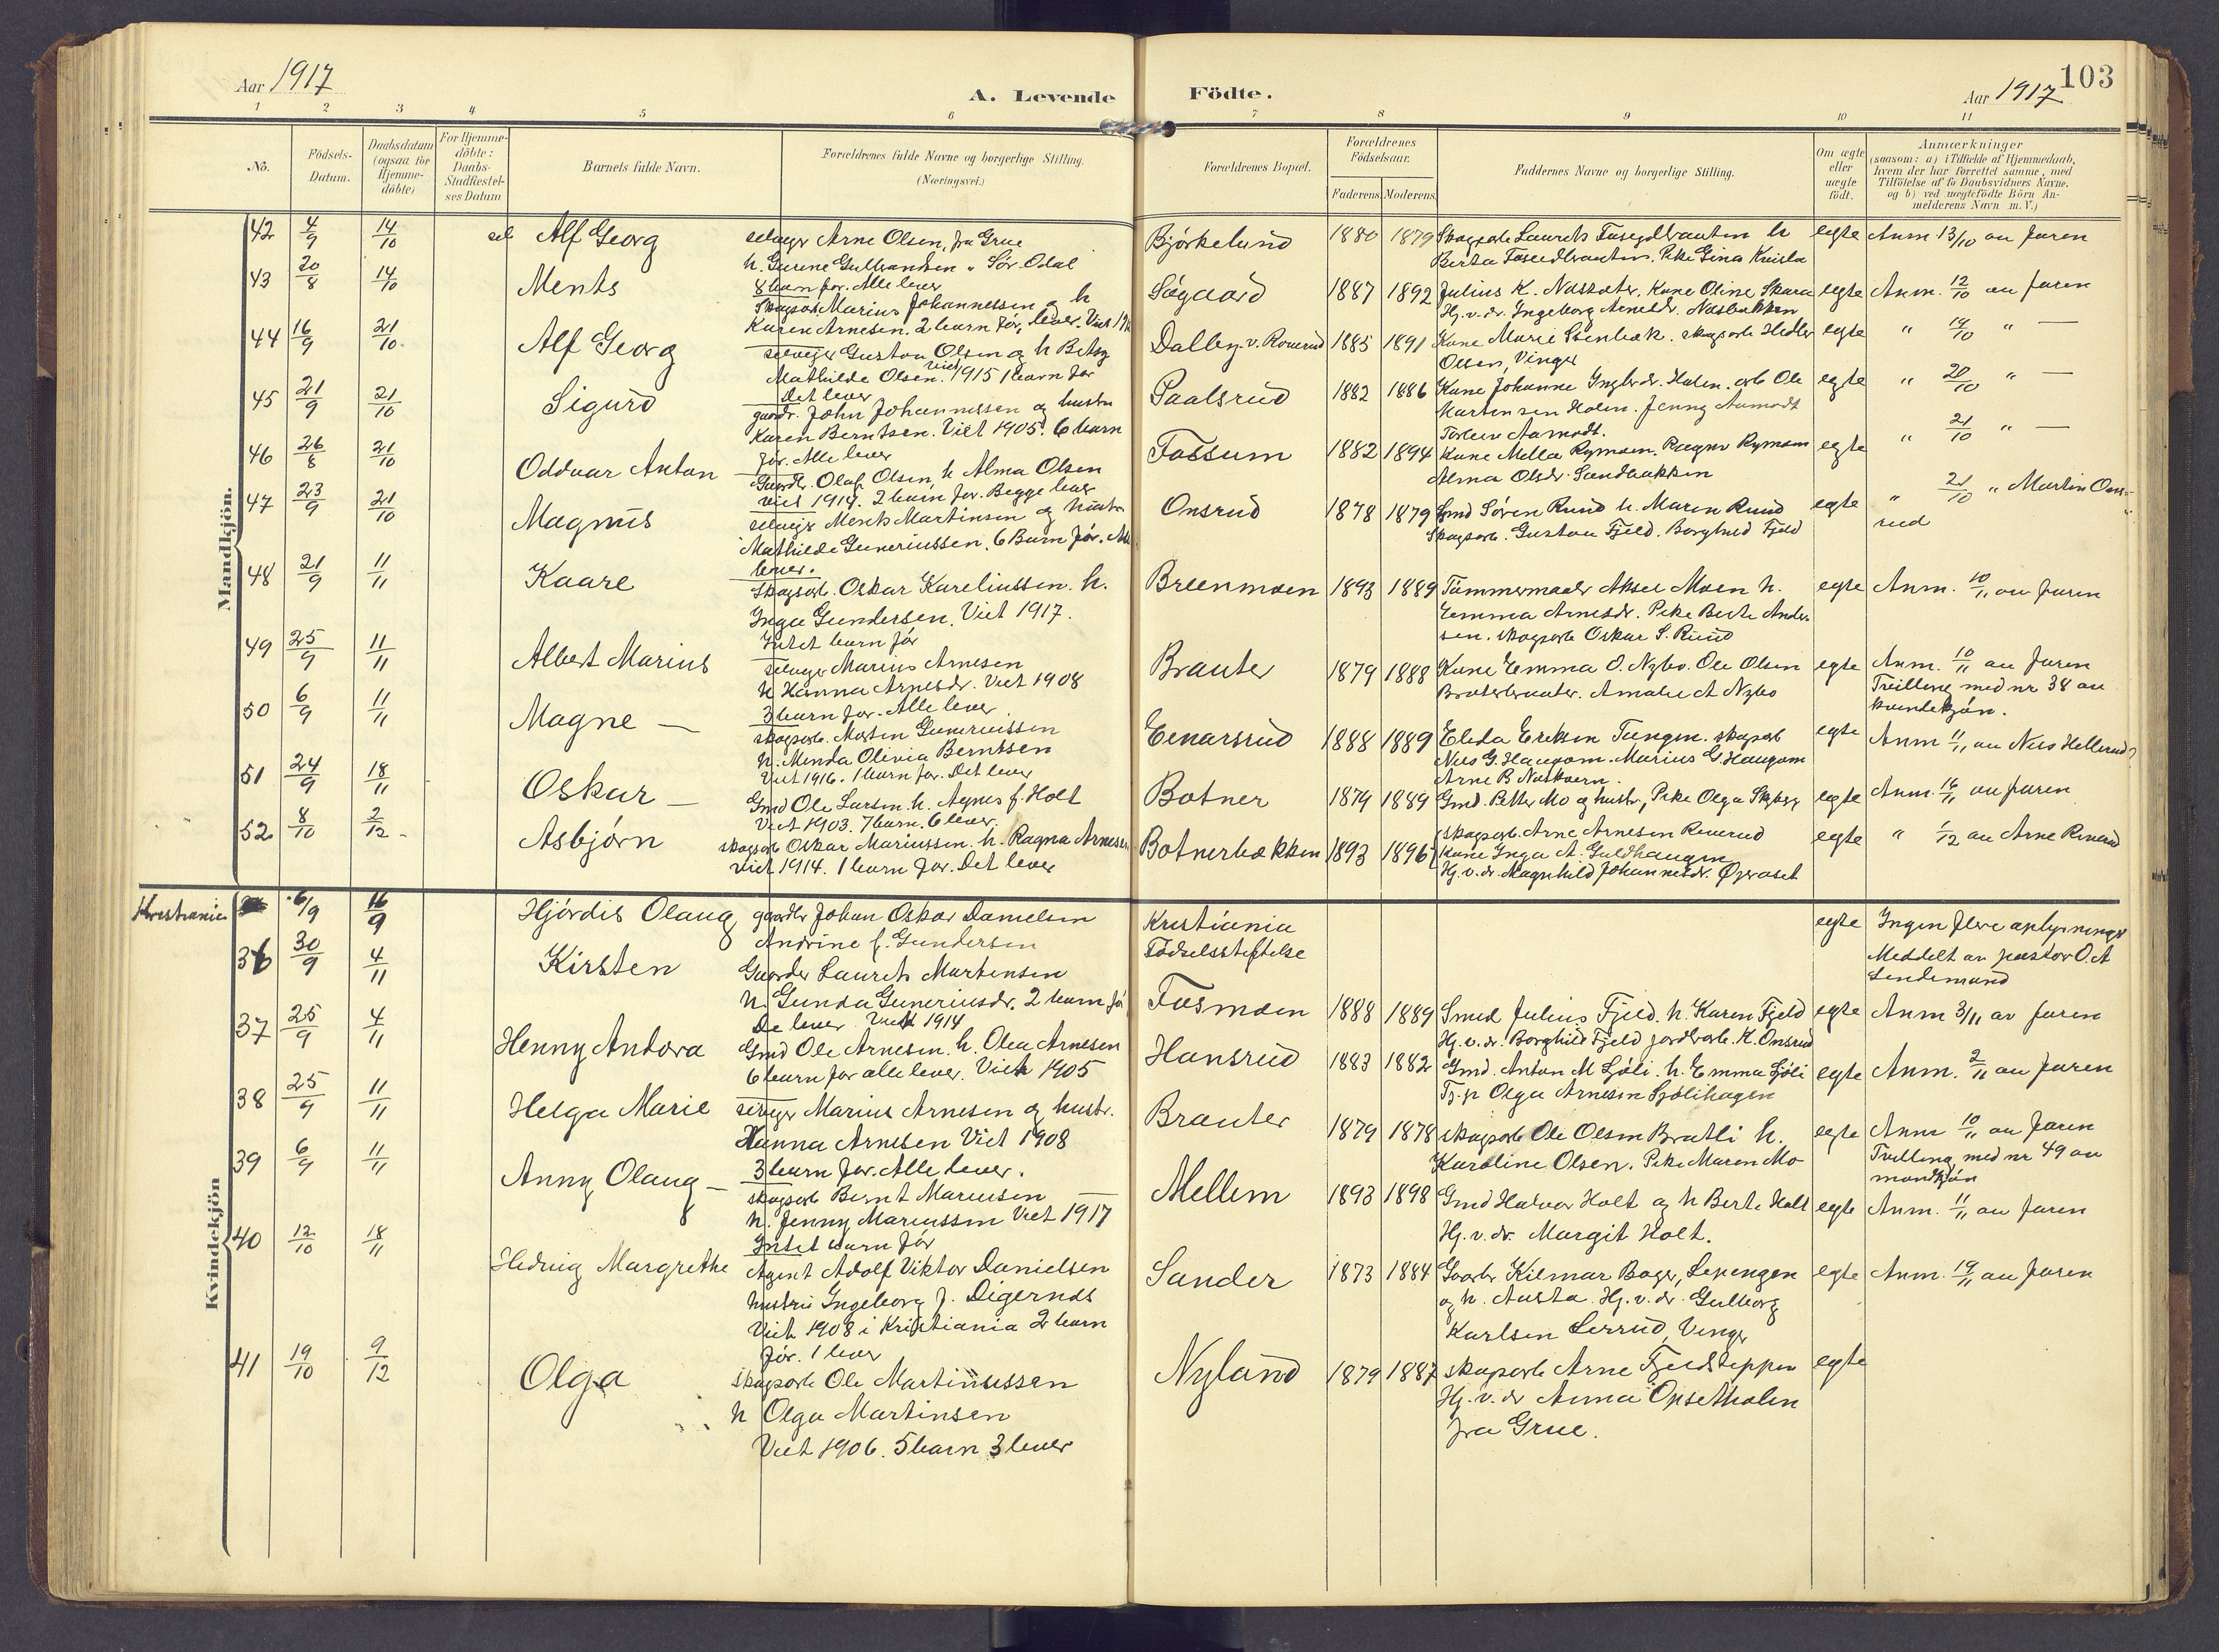 Aar 1917
A. Levende Födte.
Aar 1917
103
1 2 3 4 5 6 7 8 9 10 11
No.
Födsels-Datum.
Daabsdatum (ogsaa for Hjemme-döbte)
For Hjemme-döbte: Daabs-Stadfæstel-ses Datum
Barnets fulde Navn.
Forældrenes fulde Navne og borgerlige Stilling. (Næringsvei.)
Forældrenes Bopæl.
Forældrenes Födselsaar.
Faderens. Moderens.
Faddernes Navne og borgerlige Stilling.
Om ægte eller uægte födt.
Anmærkninger
(saasom: a) i Tilfælde af Hjemmedaab, hvem der har forrettet samme, med Tilföielse af to Daabsvidners Navne, og b) ved uægtefödte Börn An-melderens Navn m. V.)
Mandkjön.
42 4/9 14/10 Alf Georg
selveger Arne Olsen, fra Grue
h. Gurine Gulbrandsen " Sör. Odal
8 barn før. Alle lever
Björkelund 1880 1879
egte Anm 13/10 av faren
43 20/8 14/10 Ments
Skogsarb Marius Johannessen og h
Karen Arnesen. 2 barn før, lever.
Sögaard 1887 1892
Julius K. Næsseter, Kone Oline Skara
Hj. v. dr. Ingeborg Arnesdr. Næsbakken
egte Anm. 12/10 av faren
44 16/9 21/10 Alf Georg
selveger Gustav Olsen og h Betsy
Mathilde Olsen. Viet 1915 1 barn før
Det lever
Dalby v. Roverud 1885 1891
Kone Marie Stenbæk. skogsarb Hedler
Olsen, Vinger
egte " 19/10 " —
45 21/9 21/10 Sigurd
gaardbr. John Johannessen og hustru
Karen Berntsen. Viet 1905. 6 barn
før. Alle lever
Paalsrud 1882 1886
Kone Johanne Holen. arb Ole
Martinsen Holen. Jenny Aamodt
Torleiv Aamodt.
egte " 20/10 " —
46 26/8 21/10 Oddvar Anton
Gaardbr. Olaf Olsen, h Alma Olsen
viet 1914. 2 barn før. Begge lever
Fossum 1882 1894
Kone Mella Rymoen. Ragnv Rymoen
Alma Olsdr. Sandbakken
egte " 21/10 " —
47 23/9 21/10 Magnus
selveger Ments Martinsen og hustru
Mathilde Guneriussen. 6 Barn før. Alle
lever.
Onsrud 1878 1879
Gmd Sören Rund h. Maren Rund
Skogsarb. Gustav Fjeld. Borghild Fjeld
egte " 21/10 " Martin Ons-
rud
48 21/9 11/11 Kaare
Skogsarb. Oskar Kareliussen. h.
Inga Gundersen. Viet 1917.
Intet barn før
Breenmoen 1893 1889
Tömmermaaler Aksel Moen h.
Emma Arnesdr. Pike Berte Ander-
sen. skogsarb Oskar S. Rund
egte Anm. 10/11 av faren
49 25/9 11/11 Albert Marius
selveger Marius Arnesen
h Hanna Arnesdr. Viet 1908
3 barn før. Alle lever
Brauter 1879 1888
Kone Emma O. Nybo. Ole Olsen
Amalie A Nybo
egte Anm. 10/11 av faren
Tvilling med nr 38 av
kvindekjön.
50 6/9 11/11 Magne —
skogsarb. Morten Guneriussen
h. Minda Olivia Berntsen
Viet 1916. 1 barn før. Det lever
Einarsrud 1888 1889
Elida Eriksen Tangen. skogsarb
Nils G. Haugsom. Marius G. Haugsom
Arne B Næskværn.
egte Anm 11/11 av Nils Hellerud?
51 24/9 18/11 Oskar —
Gmd Ole Larsen. h. Agnes f. Holt
Viet 1903. 7 barn. 6 lever,
Botner 1879 1889
Gmd. Petter Mo og hustr, Pike Olga Skyberg
egte Anm. 16/11 av faren
52 8/10 2/12 Asbjörn
skogsarb Oskar Mariussen. h. Ragna Arnesen
viet 1914. 1 barn før. Det lever
Botnerbækken 1893 1896
skogsarb. Arne Arnesen Reverud
Kone Inga A. Guldhaugen
Hj. v. dr. Magnhild Johannesdr. Øgeraset
egte " 1/12 av Arne Reverud
Kvindekjön
Kristiania 6/9 16/9 Hjördis Olaug
gaardbr Johan Oskar Danielsen
Andrine f. Gundersen
Kristiania
Födselsstiftelse
egte Ingen flere oplysninger
Meddelt av pastor O. A
Lindemand
36 30/9 4/11 Kirsten
Gaardbr Laurits Martinsen
h. Gunda Guneriusdr. 2 barn før
De lever. Viet 1914
Fosmoen 1888 1889
Smed Julius Fjeld. h. Karen Fjeld
Hj. v. dr. Borghild Fjeld jordbrarb. K. Onsrud
egte Anm 3/11 av faren
37 25/9 4/11 Henny Andora
Gmd Ole Arnesen. h. Olea Arnesen
6 barn før alle lever. Viet 1905
Hansrud 1883 1882
Gmd. Anton M Sjöli. h. Emma Sjöli
Tj. p Olga Arnesen Sjölihagen
egte Anm. 2/11 av faren
38 25/9 11/11 Helga Marie
selveger Marius Arnesen og hustr.
Hanna Arnesen Viet 1908
3 barn før. Alle lever.
Brauter 1879 1878
skogsarb Ole Olsen Bratli h.
Karoline Olsen. Pike Maren Mo
egte Anm 10/11 av faren
Tvilling med nr 49 av
mandkjön
39 6/9 11/11 Anny Olaug —
skogsarb Bernt Mariusen
h. Jenny Mariussen Viet 1917
Intet barn før
Mellem 1893 1898
Gmd Halvor Holt og h Berte Holt
Hj. v. dr. Margit Holt.
egte Anm. 11/11 av faren
40 12/10 18/11 Hedvig Margrethe
Agent Adolf Viktor Danielsen
hustru Ingeborg f. Digernæs
Viet 1908 i Kristiania 2 barn
før. 1 lever
Sander 1873 1884
Gaardbr. Kilmar Boger, Lepengen
og h. Austa. Hj. v. dr. Gulborg
Karlsen Lerrud, Vinger
egte Anm. 19/11 av faren
41 19/10 9/12 Olga
skogsarb Ole Martinussen
h Olga Martinsen
Viet 1906. 5 barn 3 lever
Nyland 1879 1887
skogsarb Arne Fjeldsteppen
Hj. v. dr Anna Opsetholen
fra Grue.
egte